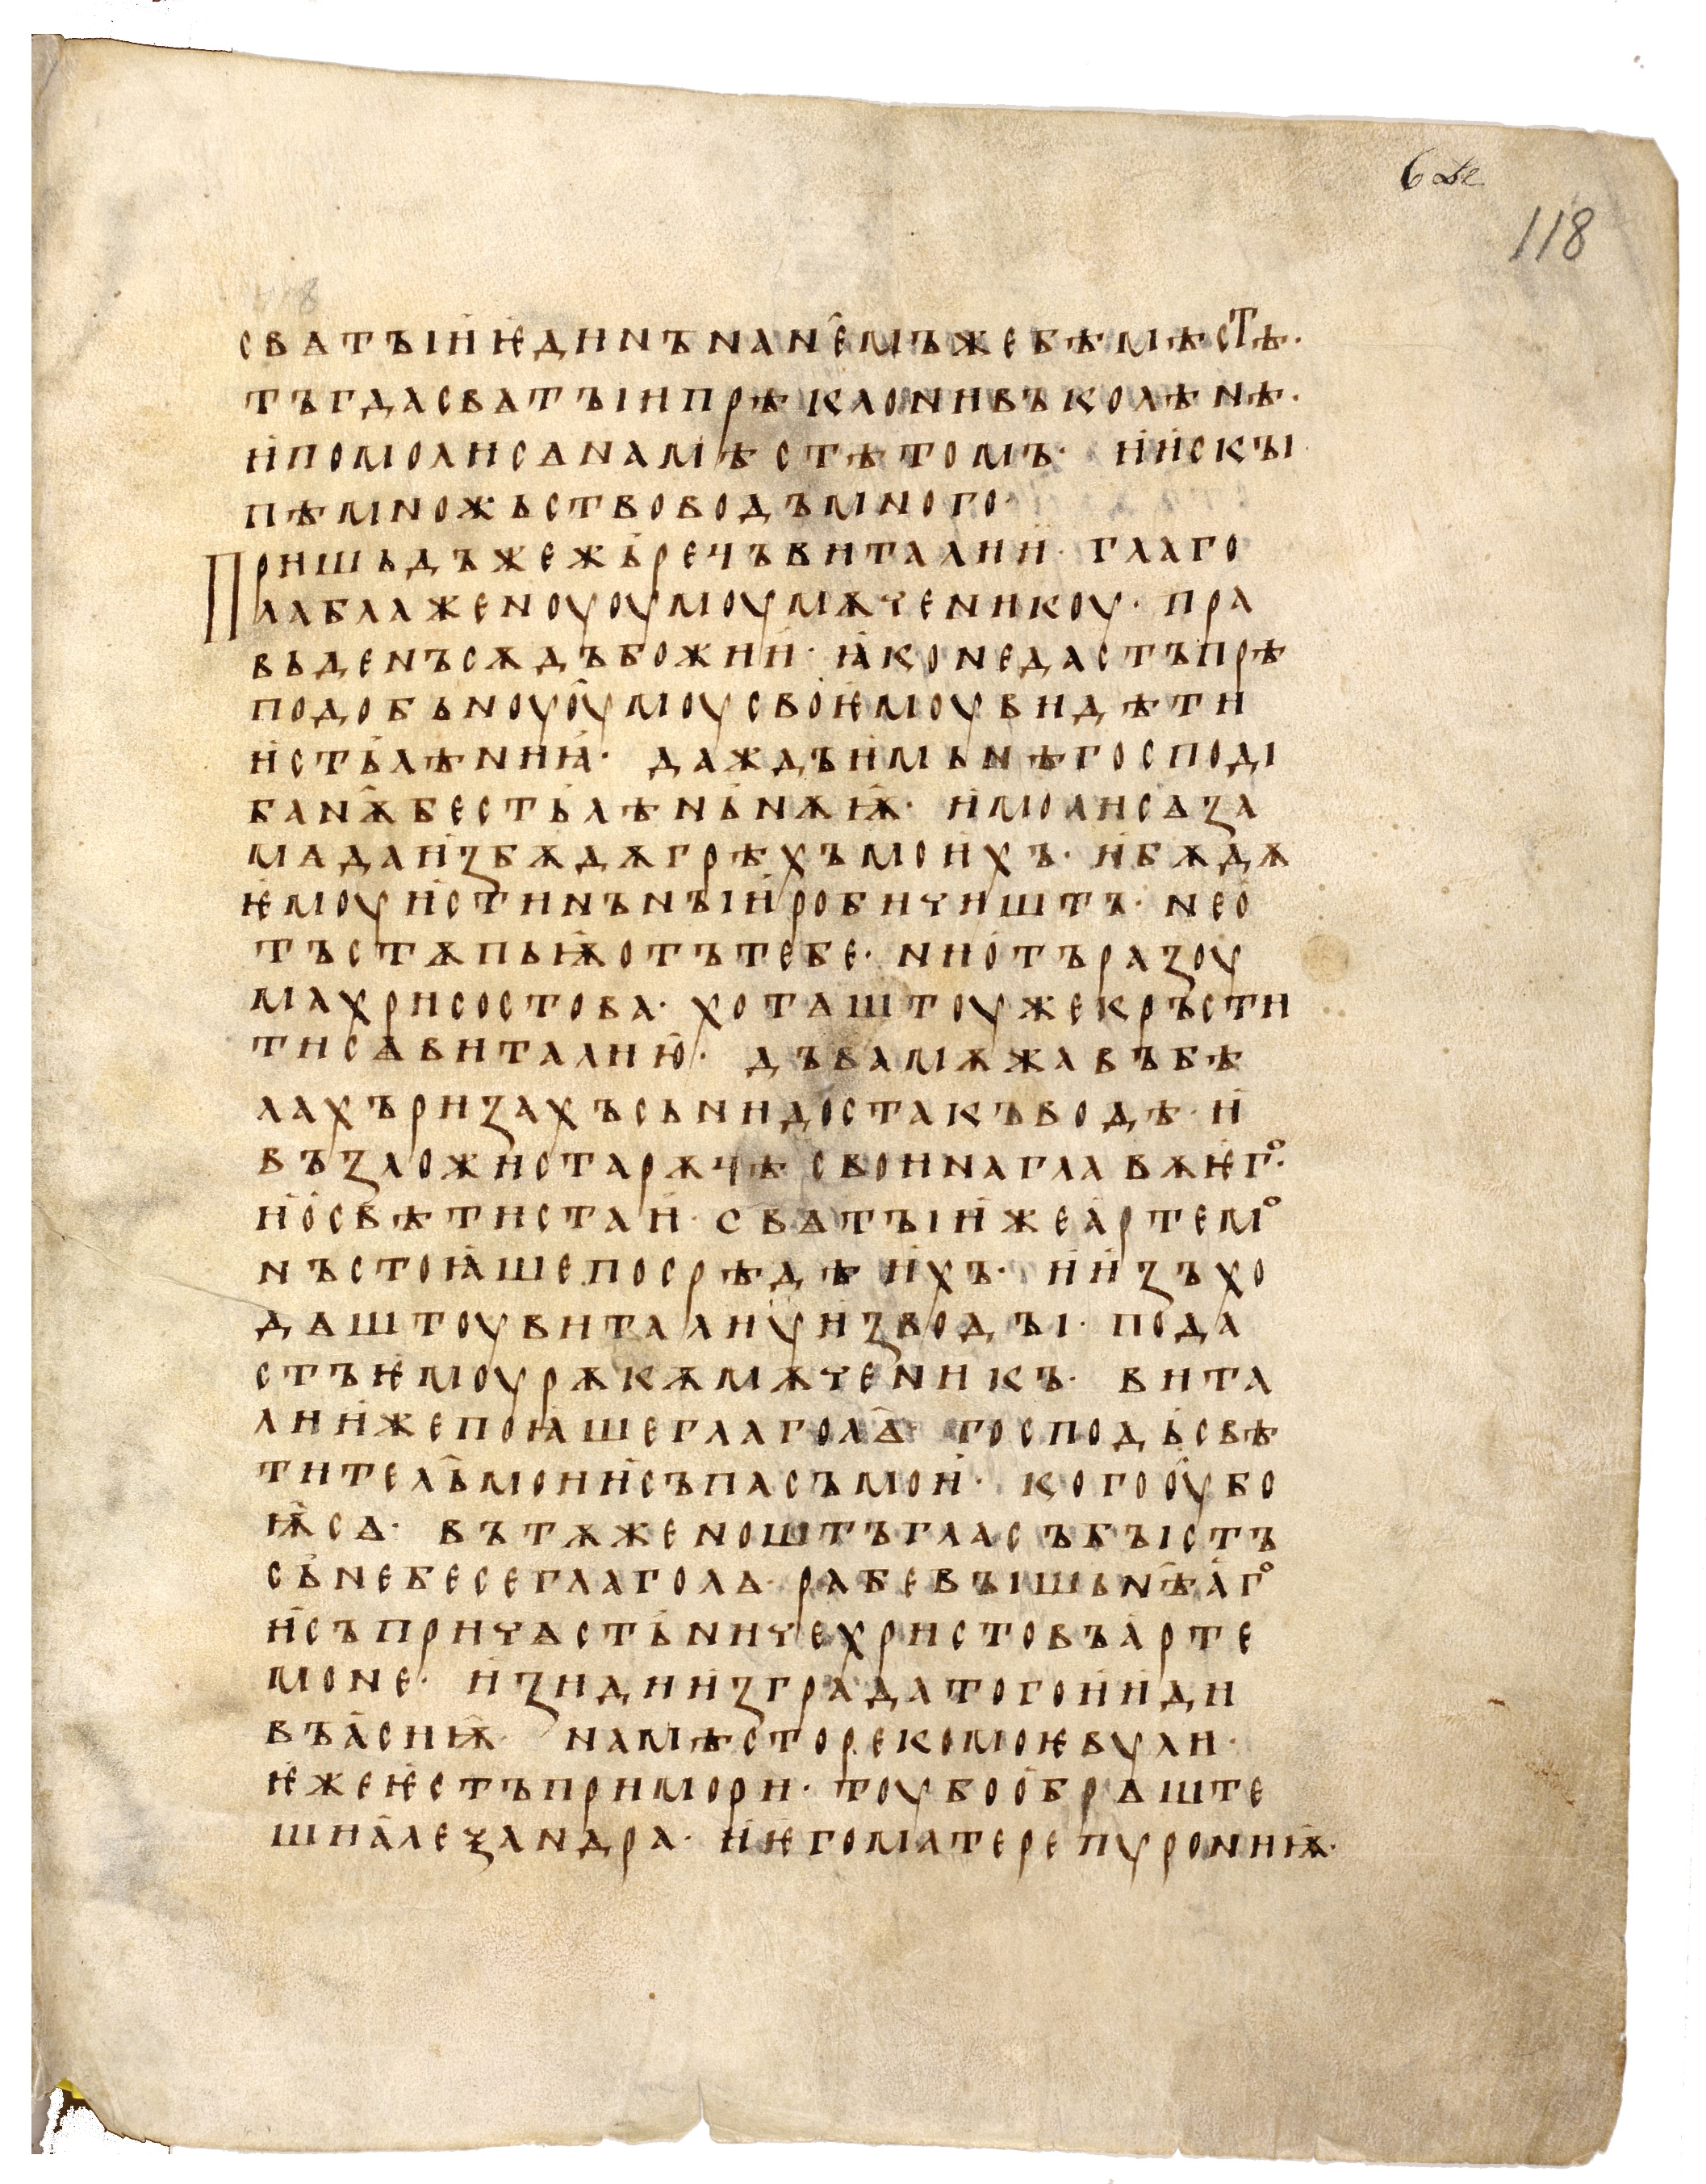 6 Де
118
свѧтъіи҅ ѥ҅динъ на н҄емъже бѣ мѣстѣ·
тъгда свѧтъіи прѣклонивъ колѣнѣ·
и҅ помоли сѧ на мѣстѣ томъ· и҅ и҅скъі
пѣ множьство водъ много·
Пришьдъ же жь҅речъ виталии҅· глаго
ла блаженоуоумоу мѫченикоу· пра
вьденъ сѫдъ божии҅· ꙗ҅ко не дастъ прѣ
подобьноуо҅умоу своѥ҅моу видѣти
и҅стьлѣниꙗ҅· даждъ и҅ мьнѣ господі
банѭ҄ бестьлѣньнѫѭ҅· и҅ моли сѧ за
мѧ да и҅збѫдѫ грѣхъ мои҅хъ· и҅ бѫдѫ
ѥ҅моу и҅стинънъіи҅ робичиштъ· не о҅
тъстѫпьѩ҅ отъ тебе· ни о҅тъ разоу
ма хрисостова· хотѧштоу же кръсти
ти сѧ виталию҅· дъва мѫжа въ бѣ
лахъ ризахъ сънидоста къ водѣ· и҅
възложиста рѫчѣ свои на главѫ ѥ҅гᲂ·
и҅ о҅свѣтиста и҅· свѧтъіи҅ же а҅ртемᲂ
нъ стоꙗ҅ше посрѣдѣ и҅хъ· и҅ и҅зъхо
дѧштоу виталиꙋ҅ и҅з водъі· пода
стъ ѥ҅моу рѫкѫ мѫченикъ· вита
лии҅ же поꙗ҅ше глаголѧ҄ господь҅ свѣ
тител҄ь мои и҅ съпасъ мои҅· кого о҅убо
ѭ҅ сѧ· въ тѫже ноштъ гласъ бъістъ
съ҅ небесе глаголѧ· рабе въішьн҄ѣа҅гᲂ
и҅ съпричѧсть҅ниче христовъ а҅рте
моне· и҅зиди и҅з града того и҅ и҅ди
въ а҅сиѭ҅· на мѣсто рекомоѥ вѵли·
ѥ҅же ѥ҅стъ при мори· тоу бо о҅брѧште
ши а҅леѯандра· и҅ ѥ҅го матере пѵрониѭ҅·